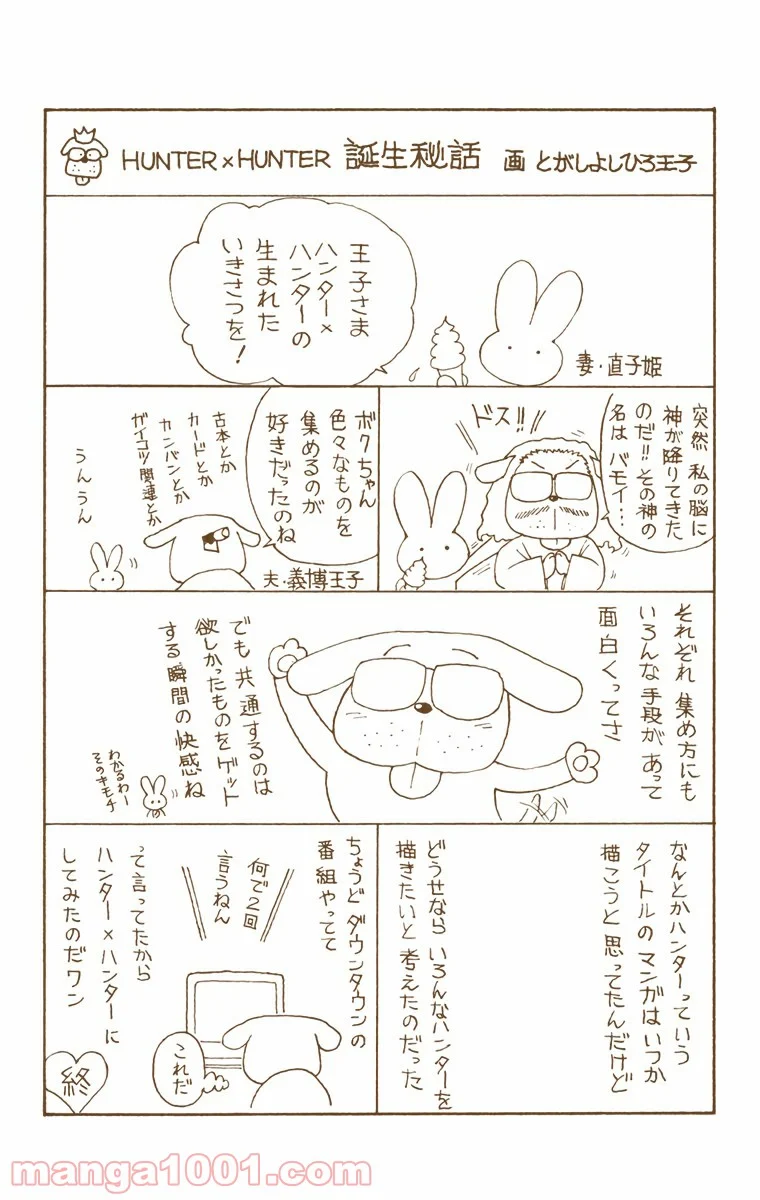 HUNTER×HUNTER 誕生秘話 画 とがしよしひろ王子
王子さま
ハンター×
ハンターの
生まれた
いきさつを!
妻・直子姫
突然 私の脳に
神が降りてきた
のだ!! その神の
名は バモイ…
ドスッ!!
ボクちゃん
色々なものを
集めるのが
好きだったのね
古本とか
カードとか
カンバンとか
ガイコツ関連とか
うんうん
夫・義博王子
それぞれ 集め方にも
いろんな 手段が あって
面白くってさ
でも 共通するのは
欲しかったものをゲット
する 瞬間の 快感ね
わかるわー
そのキモチ
なんとかハンターっていう
タイトルの マンガは いつか
描こうと 思ってたんだけど
どうせなら いろんなハンターを
描きたいと 考えたのだった
ちょうど ダウンタウンの
番組やってて
何で2回
言うねん
って言ってたから
ハンター×ハンターに
してみたのだワン
これだ
終
manga1001.com